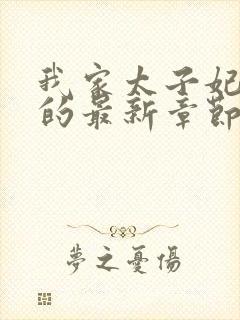 我家太子妃
的最新章節
夢之憂傷